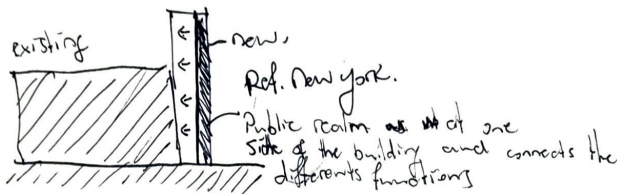 existing
new.
Ref. New york.
Public realm at one
side of the building and connects the
differents functions